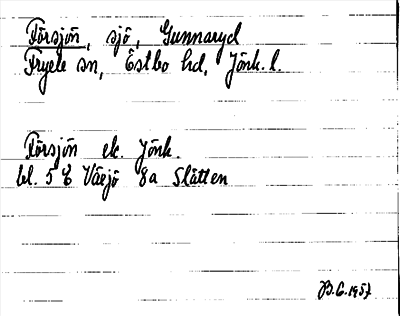 Försjön, sjö, Gunnaryd
Fryele sn, Östbo hd, Jönk. l.
Försjön ek. Jönk.
bl. 5 E Växjö 8a Slätten
B.G. 1957